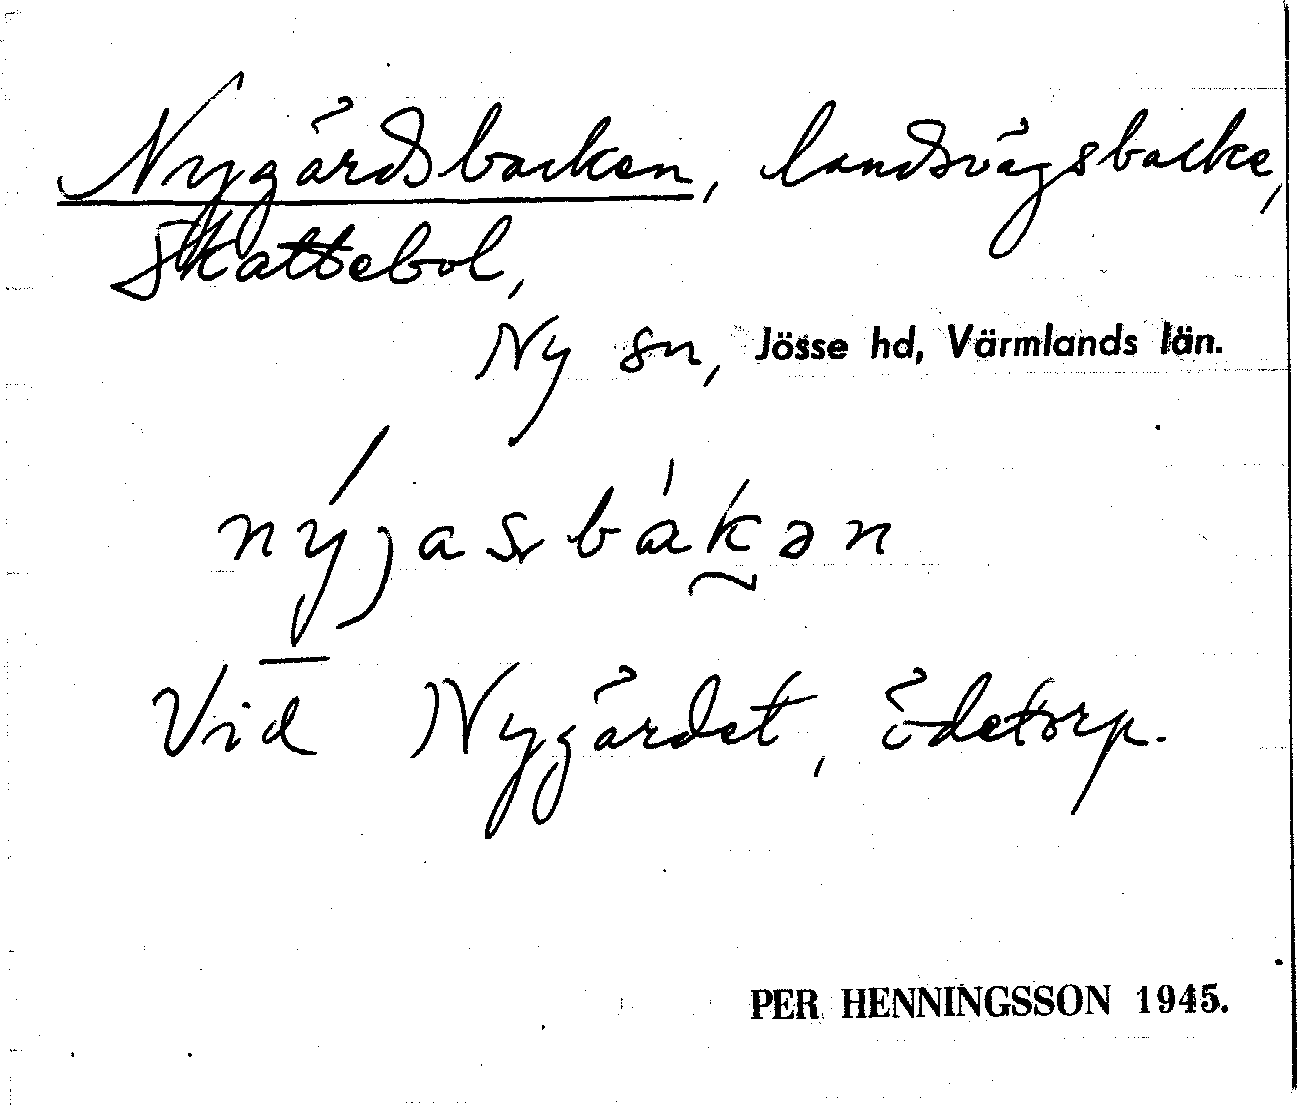 Nygårdsbacken, landsvägsbacke,
Skattebol,
Ny sn, Jösse hd, Värmlands län.
nýjasbákən
Vid Nygårdet, ödetorp.
PER HENNINGSSON 1945.